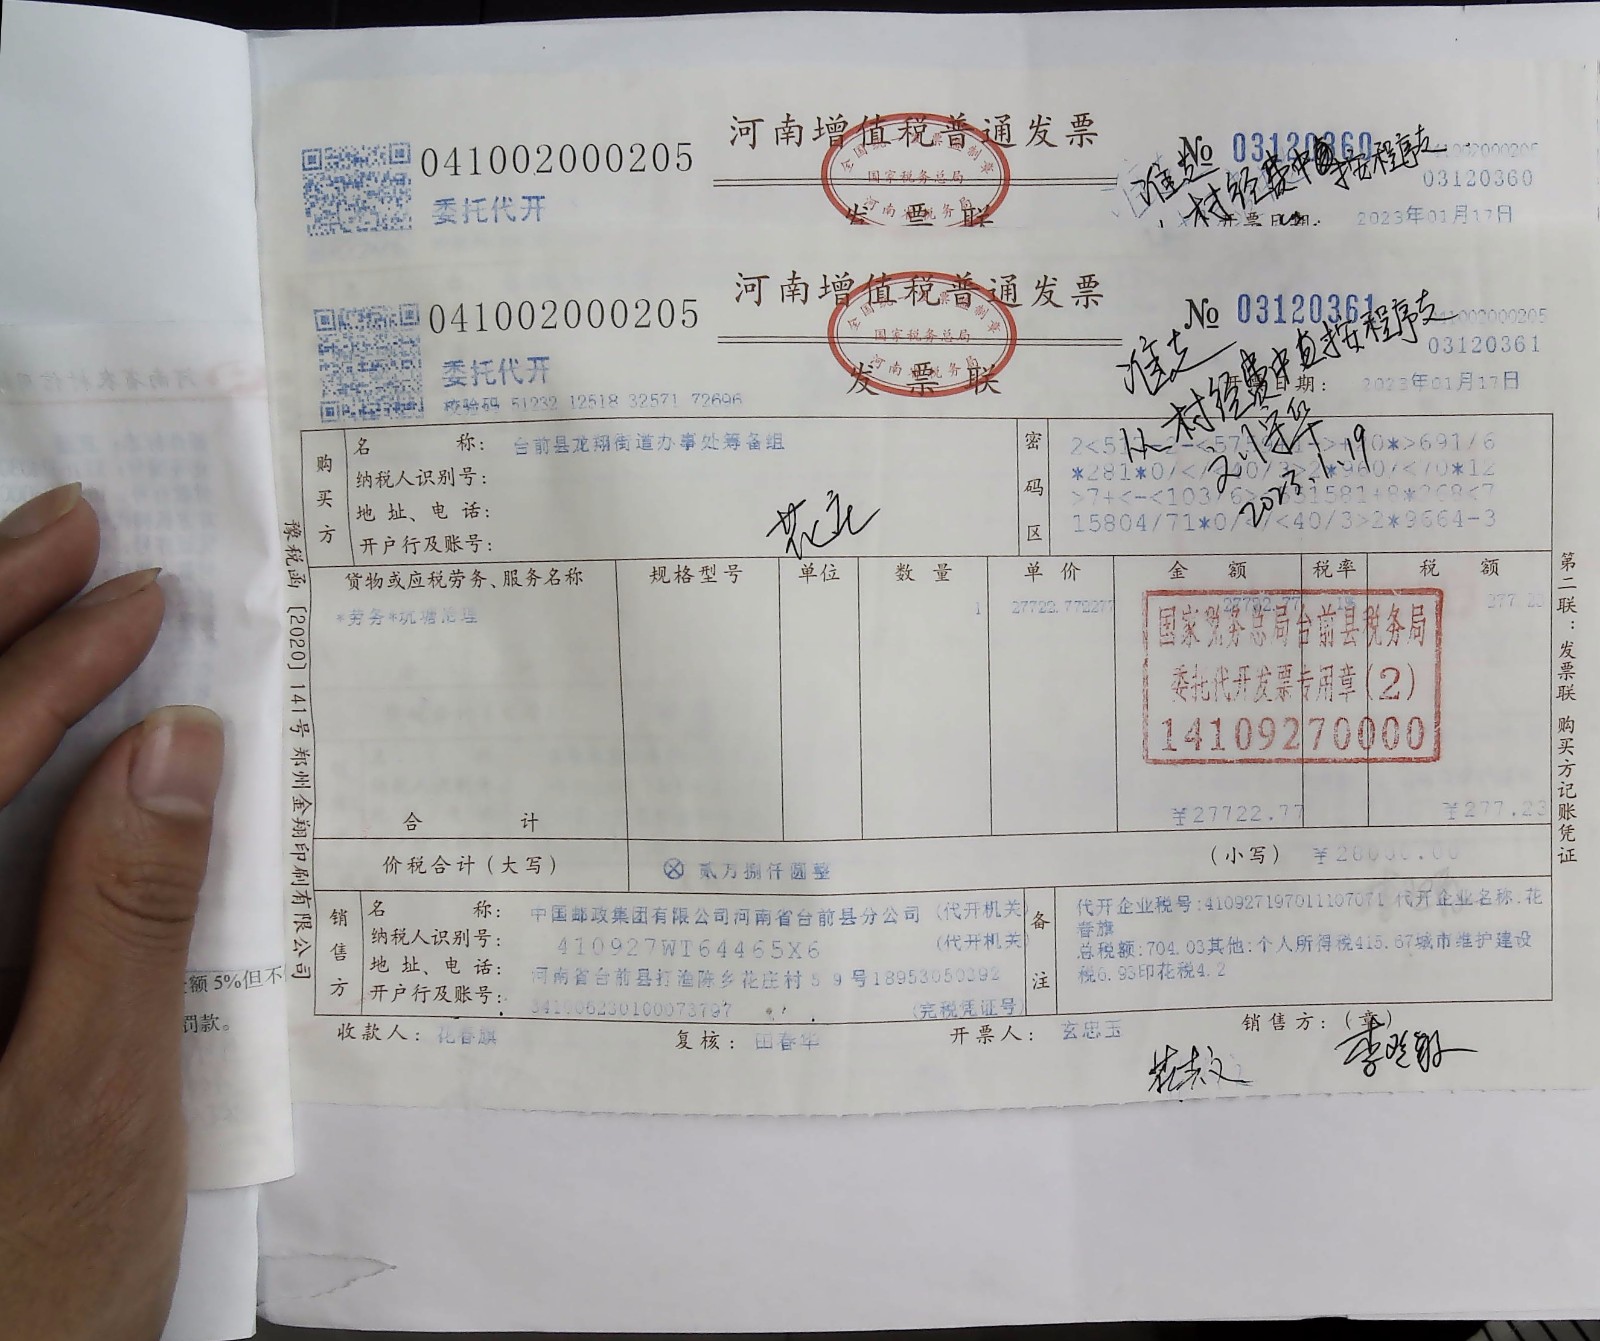 河南增值税普通发票
041002000205
委托代开
发票联
全国统一发票监制章
国家税务总局
河南省税务局
№ 03120360
041002000205
03120360
准支
村经费中直按程序支
开票日期: 2023年01月17日
河南增值税普通发票
041002000205
委托代开
校验码 51232 12518 32571 72696
发票联
国家税务总局
河南省税务局
№ 03120361
041002000205
03120361
开票日期: 2023年01月17日
准支
从村经费中直按程序支
2023.1.19
购买方
名称: 台前县龙翔街道办事处筹备组
纳税人识别号:
地址、电话:
开户行及账号:
花庄
密码区
15804/71*0/</<40/3>2*9664-3
货物或应税劳务、服务名称 规格型号 单位 数量 单价 金额 税率 税额
*劳务*坑塘治理 1 27722.772277 27722.77 1% 277.23
国家税务总局台前县税务局
委托代开发票专用章(2)
14109270000
合计 ¥27722.77 ¥277.23
价税合计(大写) ⊗ 贰万捌仟圆整 (小写) ¥28000.00
销售方
名称: 中国邮政集团有限公司河南省台前县分公司 (代开机关
纳税人识别号: 410927WT64465X6 (代开机关
地址、电话: 河南省台前县打渔陈乡花庄村59号18953050392
开户行及账号: 341006230100073797 (完税凭证号)
备注
代开企业税号:410927197011107071 代开企业名称:花
春旗
总税额:704.03其他:个人所得税415.67城市维护建设
税6.93印花税4.2
收款人: 花春旗 复核: 田春华 开票人: 玄忠玉 销售方:(章)
豫税函[2020]141号 郑州金翔印刷有限公司
第二联:发票联 购买方记账凭证
额5%但不
罚款。